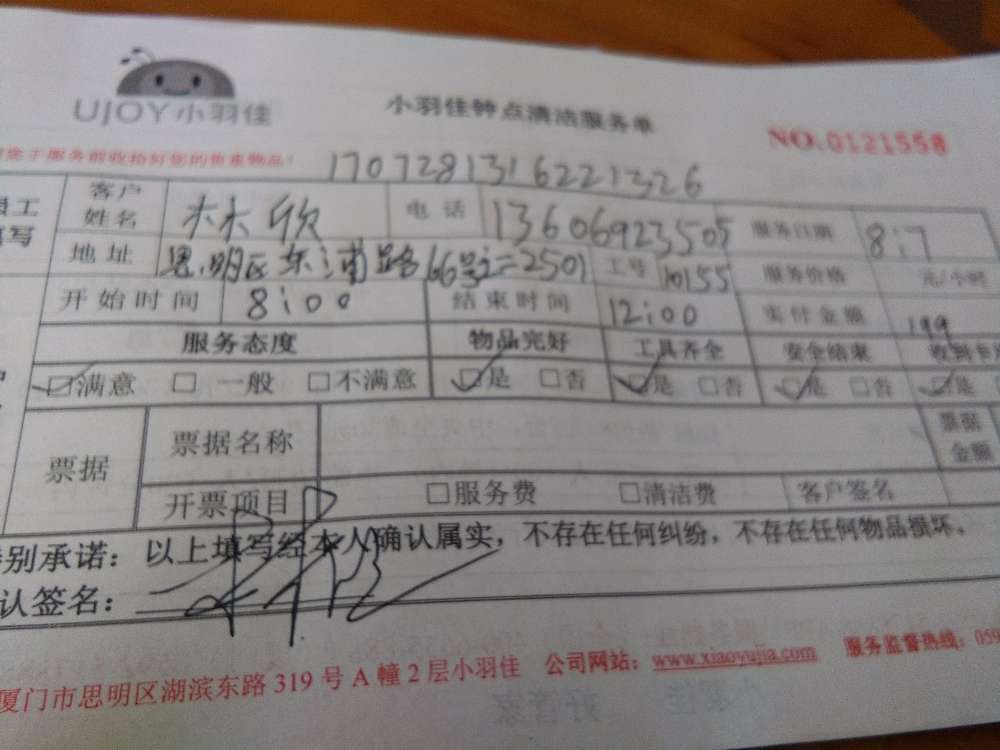 UJOY小羽佳
小羽佳钟点清洁服务单
NO.0121558
于服务前收拾好您的贵重物品!
1707281316221326
员工 客户姓名 林欣 电话 13606923505 服务日期 8:7
填写 地址 思明区东浦路66号之二2501 工号 10155 服务价格 元/小时
开始时间 8:00 结束时间 12:00 实付金额 199
服务态度 物品完好 工具齐全 安全结束
☑满意 □一般 □不满意 ☑是 □否 ☑是 □否 ☑是 □否 ☑是
票据 票据名称 票据金额
开票项目 □服务费 □清洁费 客户签名
别承诺：以上填写经本人确认属实，不存在任何纠纷，不存在任何物品损坏。
认签名：
厦门市思明区湖滨东路 319 号 A 幢 2 层小羽佳 公司网站：www.xiaoyujia.com 服务监督热线：059